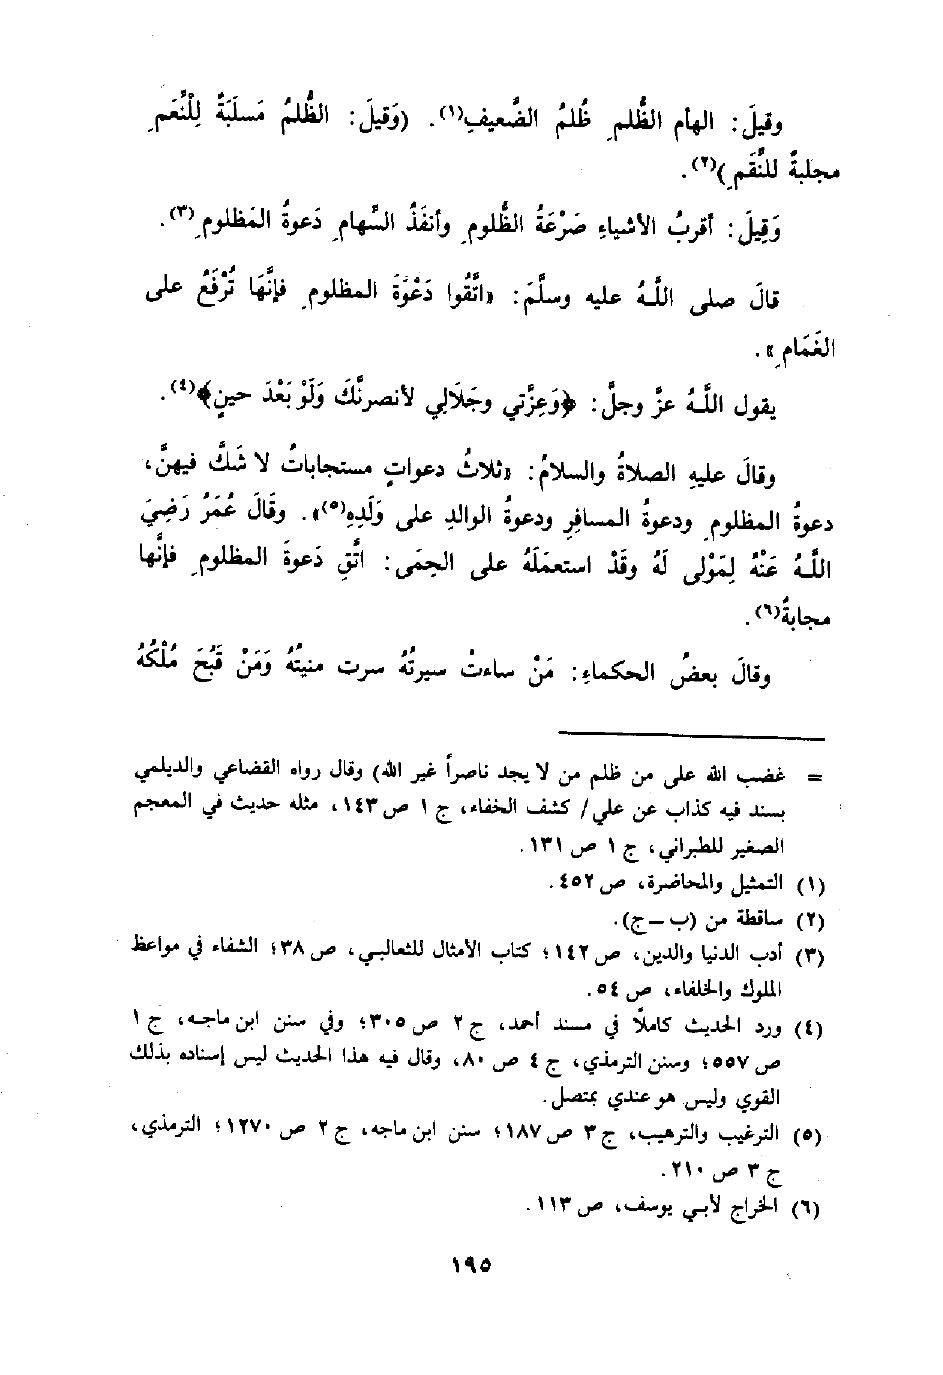 وقيلَ: الهأم الظُّلمِ ظُلمُ الضَّعيفِ(١). (وَقيلَ: الظُّلمُ مَسلَبَةٌ لِلْنُّعَمِ
مجلبةٌ للنُّقَمِ)(٢).
وَقِيلَ: أقربُ الأشياءِ صَرْعَةُ الظَّلومِ وأنفَذُ السِّهامِ دَعوةُ المَظلومِ(٣).
قالَ صلى اللَّهُ عليه وسلَّمَ: «اتَّقُوا دَعْوَةَ المظلومِ فإنَّهَا تُرْفَعُ على
الغَمَامِ».
يقول اللَّهُ عزَّ وجلَّ: ﴿وَعِزَّتي وجَلَالي لأنصرنَّكَ وَلَوْ بَعْدَ حينٍ﴾(٤).
وقالَ عليهِ الصلاةُ والسلامُ: «ثلاثُ دعواتٍ مستجاباتُ لا شَكَّ فيهنَّ،
دعوةُ المظلومِ ودعوةُ المسافرِ ودعوةُ الوالدِ على وَلَدِهِ(٥)». وقَالَ عُمَرُ رَضِيَ
اللَّهُ عَنْهُ لِمَوْلى لَهُ وقَدْ استعمَلَهُ على الحِمَى: اتَّقِ دَعوةَ المظلومِ فإنَّها
مجابةٌ(٦).
وقالَ بعضُ الحكماءِ: مَنْ ساءتْ سيرتُهُ سرت منيتُهُ وَمَنْ قَبُحَ مُلْكُهُ
= غضب الله على من ظلم من لا يجد ناصراً غير الله) وقال رواه القضاعي والديلمي
بسند فيه كذاب عن علي/ كشف الخفاء، ج ١ ص ١٤٣، مثله حديث في المعجم
الصغير للطبراني، ج ١ ص ١٣١.
(١) التمثيل والمحاضرة، ص ٤٥٢.
(٢) ساقطة من (ب – ج).
(٣) أدب الدنيا والدين، ص ١٤٢؛ كتاب الأمثال للثعالبي، ص ٣٨؛ الشفاء في مواعظ
الملوك والخلفاء، ص ٥٤.
(٤) ورد الحديث كاملاً في مسند أحمد، ج ٢ ص ٣٠٥؛ وفي سنن ابن ماجه، ج ١
ص ٥٥٧؛ وسنن الترمذي، ج ٤ ص ٨٠، وقال فيه هذا الحديث ليس إسناده بذلك
القوي وليس هو عندي بمتصل.
(٥) الترغيب والترهيب، ج ٣ ص ١٨٧؛ سنن ابن ماجه، ج ٢ ص ١٢٧٠؛ الترمذي،
ج ٣ ص ٢١٠.
(٦) الخراج لأبي يوسف، ص ١١٣.
١٩٥